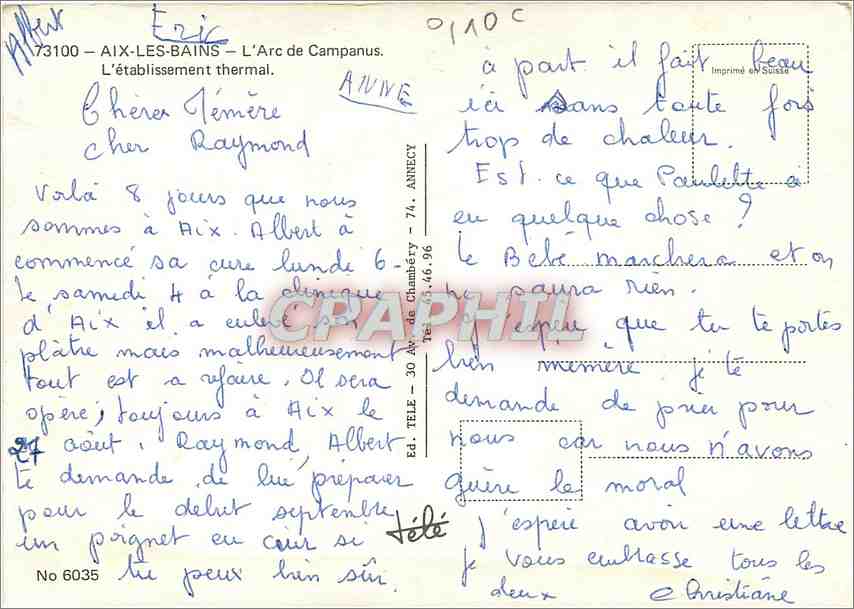 Albert
Eric
0,10 c
73100 – AIX-LES-BAINS – L'Arc de Campanus.
L'établissement thermal.
ANNE
Chère Mémère
cher Raymond
Voilà 8 jours que nous
sommes à Aix. Albert à
commencé sa cure lundi 6-
le samedi 4 à la clinique
d'Aix il a enlevé son
plâtre mais malheureusement
tout est a refaire. Il sera
opéré, toujours à Aix le
27 août. Raymond, Albert
te demande de lui préparer
pour le debut septembre
un poignet en cuir si
tu peux bien sûr.
No 6035
Ed. TELE – 30 Av. de Chambéry – 74. ANNECY
Tél. 45.46.96
télé
CPARPHIL
Imprimé en Suisse
à part il fait beau
ici sans toute fois
trop de chaleur.
Est. ce que Paulette a
eu quelque chose ?
le Bébé marchera et on
ne saura rien.
j'espère que tu te portes
bien mémère. je te
demande de prier pour
nous car nous n'avons
guère le moral
j'espère avoir une lettre
je vous embrasse tous les
deux Christiane